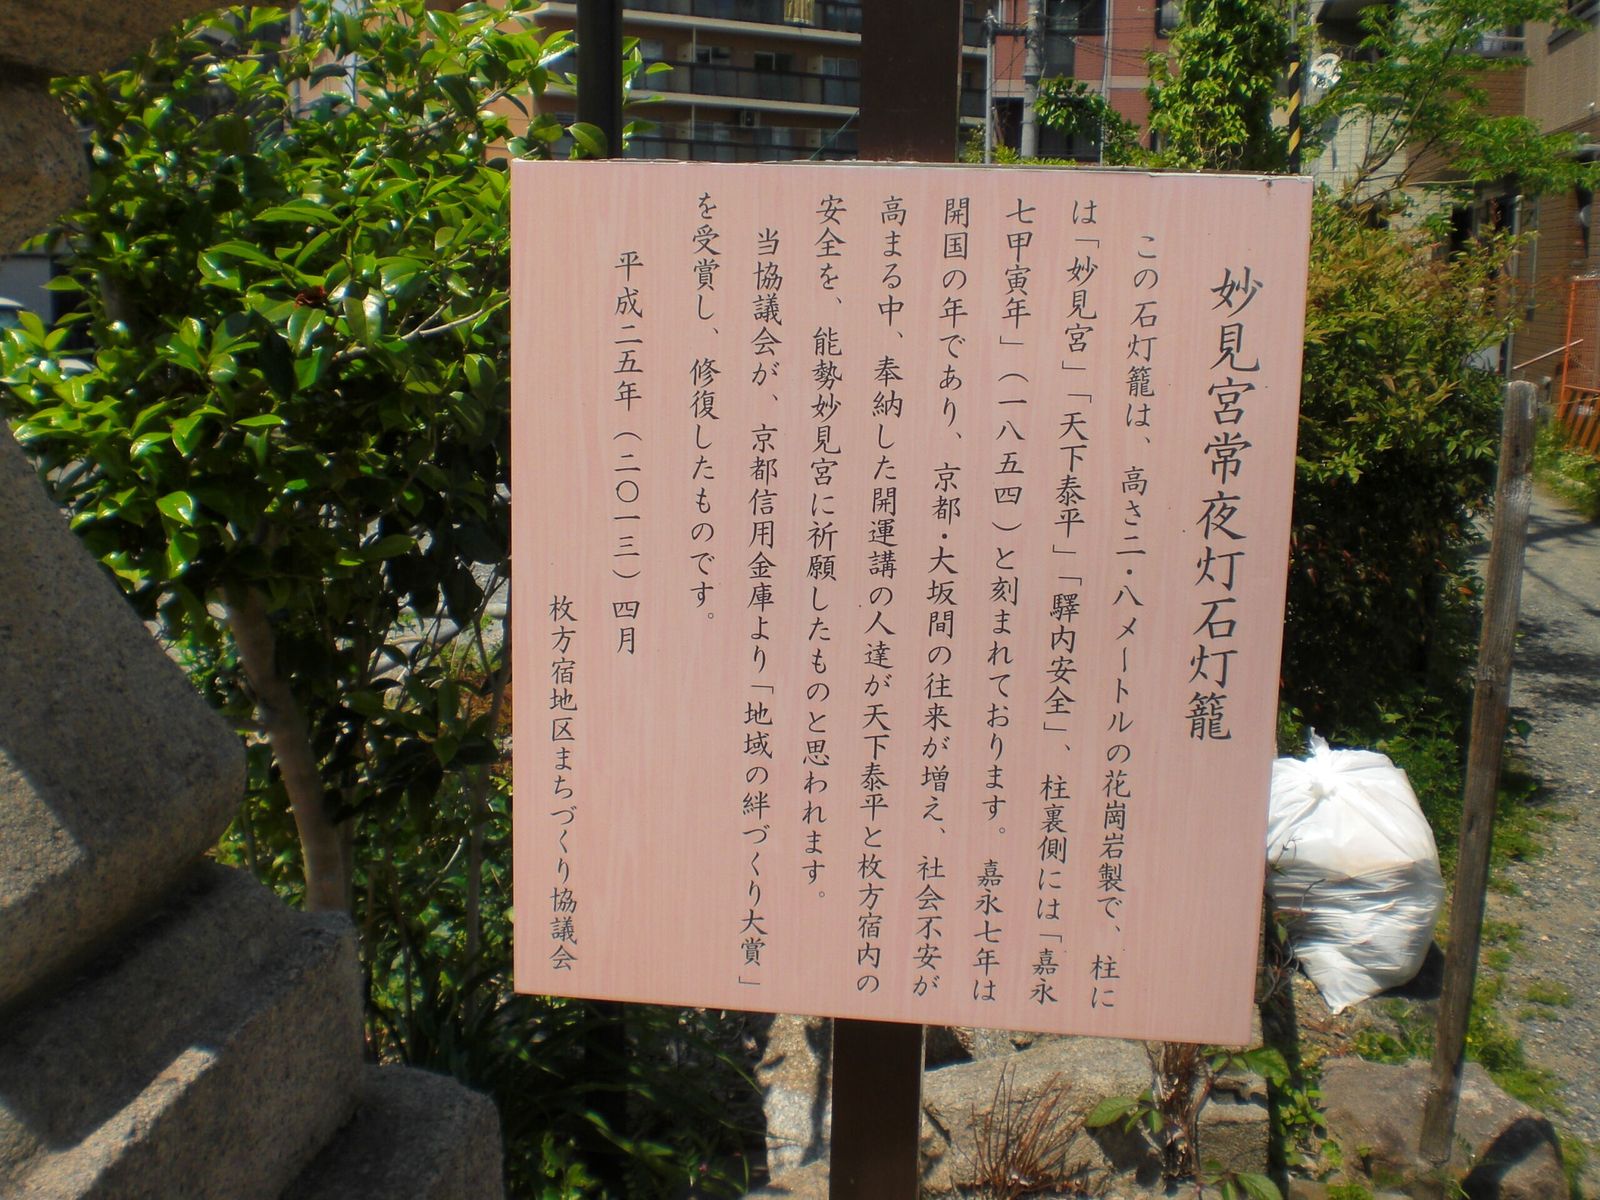 妙見宮常夜灯石灯籠
この石灯籠は、高さ二・八メートルの花崗岩製で、柱に
は「妙見宮」「天下泰平」「驛内安全」、柱裏側には「嘉永
七甲寅年」（一八五四）と刻まれております。嘉永七年は
開国の年であり、京都・大坂間の往来が増え、社会不安が
高まる中、奉納した開運講の人達が天下泰平と枚方宿内の
安全を、能勢妙見宮に祈願したものと思われます。
当協議会が、京都信用金庫より「地域の絆づくり大賞」
を受賞し、修復したものです。
平成二五年（二〇一三）四月
枚方宿地区まちづくり協議会